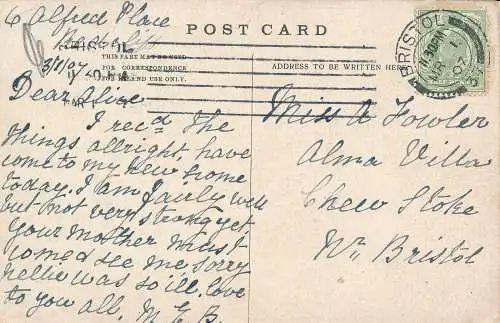 6 Alfred Place
Redcliff
3/1/07
Dear Alice.
I recd The
things allright, have
come to my new home
today. I am fairly well
but not very strong yet.
your Mother must
come & see me, sorry
nellie was so ill. love
to you all. M. E. B.
POST CARD
THIS PART MAY BE USED
FOR CORRESPONDENCE
AND INLAND USE ONLY.
ADDRESS TO BE WRITTEN HERE
BRISTOL
11.30PM
07
Miss A Fowler
Alma Villa
Chew Stoke
Nr Bristol